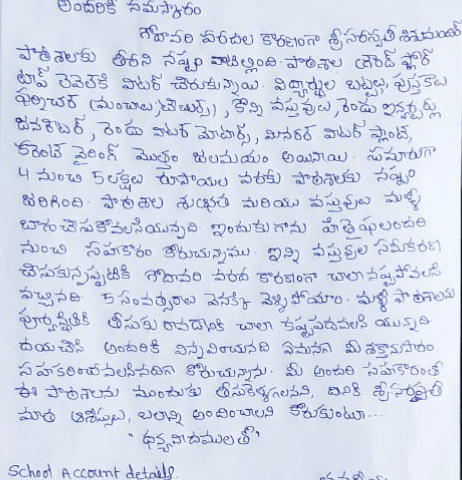 అందరికి నమస్కారం
గోదావరి వరదల కారణంగా శ్రీ సరస్వతీ శిశుమందిర్
పాఠశాలకు తీరని నష్టం వాటిల్లింది. పాఠశాల గ్రౌండ్ ఫ్లోర్
టాప్ లెవెల్‌కి వాటర్ చేరుకున్నాయి. విద్యార్థుల బట్టలు, పుస్తకాలు
ఫర్నిచర్ (మంచాలు, టేబుల్స్), కొన్ని వస్తువులు, రెండు ఇన్వర్టర్లు
జనరేటర్, రెండు వాటర్ మోటార్స్, మినరల్ వాటర్ ప్లాంట్,
కరెంట్ వైరింగ్ మొత్తం జలమయం అయినాయి. సుమారుగా
4 నుంచి 5 లక్షల రూపాయల వరకు పాఠశాలకు నష్టం
జరిగింది. పాఠశాల శుభ్రత మరియు వస్తువులు మళ్ళీ
బాగు చేసుకోవలసియున్నది. ఇందుకుగాను హితైషులందరి
నుంచి సహకారం కోరుచున్నాము. ఇన్ని వస్తువుల సమీకరణ
చేసుకున్నప్పటికి గోదావరి వరద కారణంగా చాలా నష్టపోవలసి
వచ్చినది. 5 సంవత్సరాలు వెనక్కి వెళ్ళిపోయాం. మళ్ళీ పాఠశాలను
పూర్వస్థితికి తీసుకు రావడానికి చాలా కష్టపడవలసి యున్నది
దయచేసి అందరికి విన్నవించునది ఏమనగా మీ శక్తానుసారం
సహకరించవలసినదిగా కోరుచున్నాను. మీ అందరి సహకారంతో
ఈ పాఠశాలను ముందుకు తీసుకెళ్ళగలనని, దీనికి శ్రీ సరస్వతీ
మాత ఆశీస్సులు, బలాన్ని అందించాలని కోరుకుంటూ...
"ధన్యవాదములతో"
School Account details.